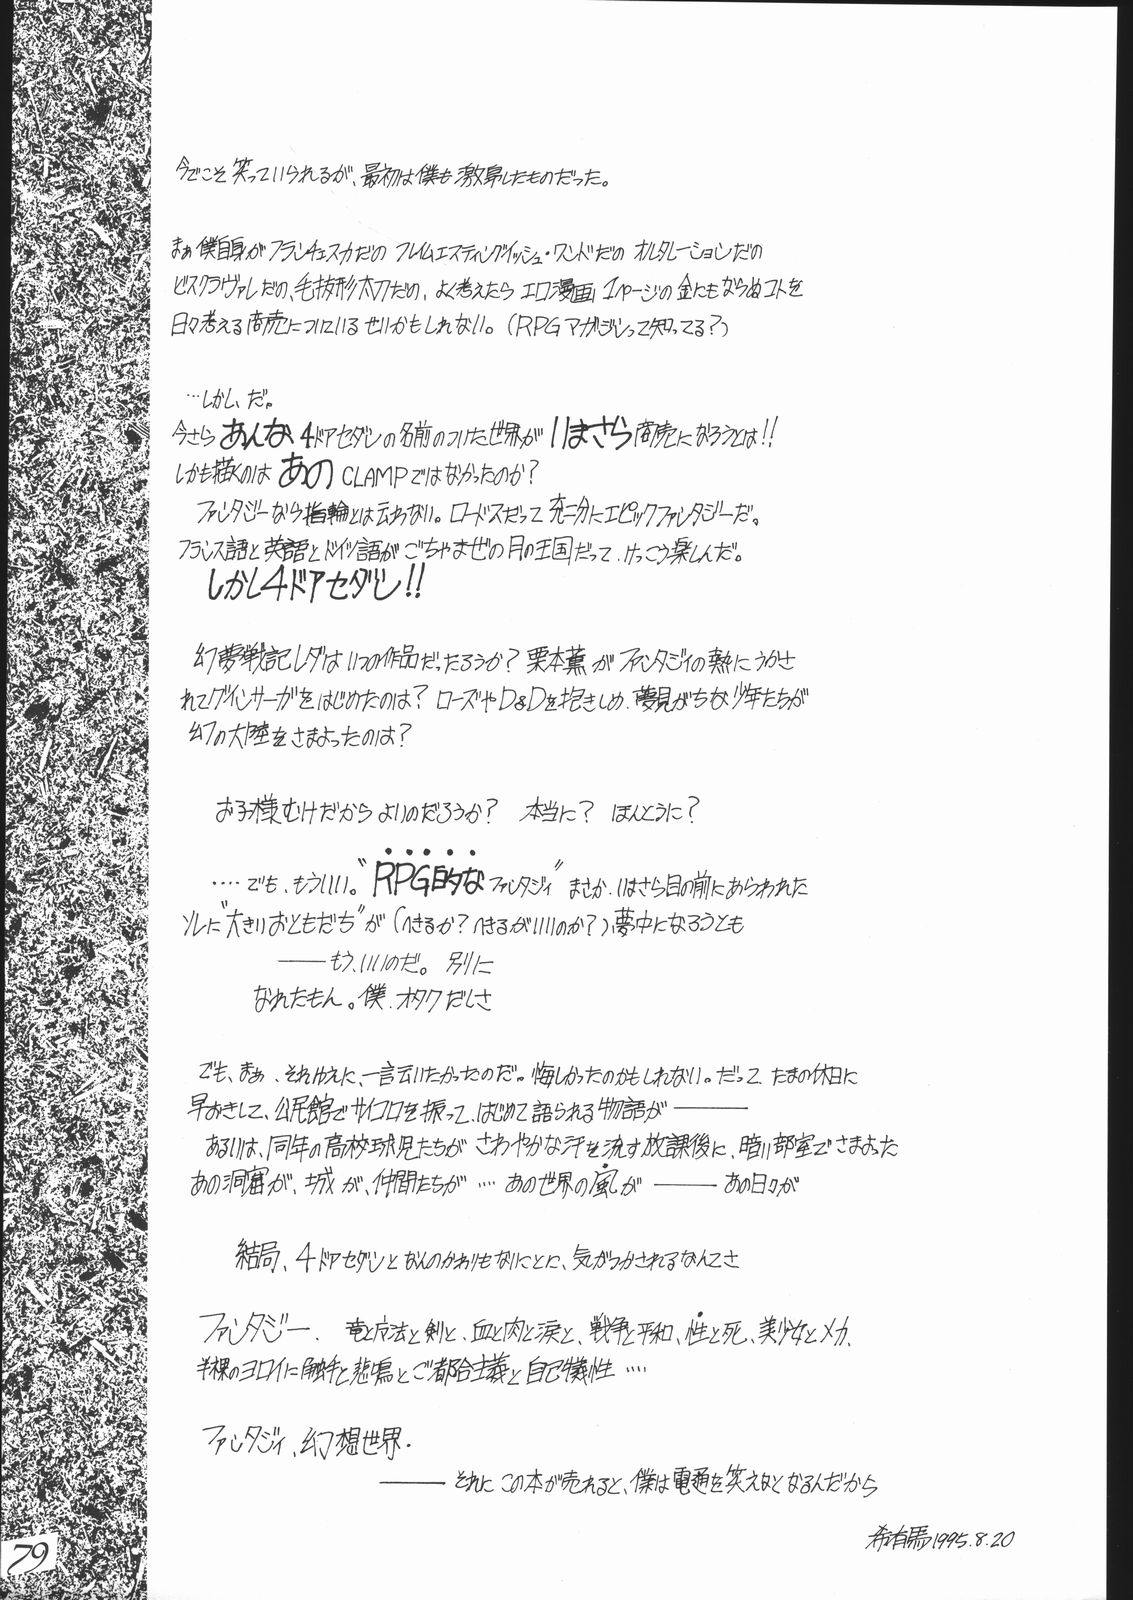 今でこそ笑っていられるが、最初は僕も激昂したものだった。
まぁ僕自身がフランチェスカだの フレイムエスティングイッシュ・ワンドだの オルタレーションだの
ビスクラヴァレだの、毛抜形太刀だの、よく考えたら エロ漫画 1ページの金にもならぬコトを
日々考える商売についているせいかもしれない。(RPGマガジンって知ってる?)
…しかし、だ。
今さら あんな 4ドアセダンの名前のついた世界が いまさら 商売になろうとは!!
しかも描くのは あの CLAMPではなかったのか?
ファンタジーなら指輪とは云わない。ロードスだって 充二分にエピックファンタジーだ。
フランス語と英語とドイツ語が ごちゃまぜの月の王国だって、けっこう楽しんだ。
しかし4ドアセダン!!
幻夢戦記レダは いつの作品だったろうか? 栗本薫が ファンタジィの熱にうかさ
れてグインサーガをはじめたのは? ローズや D&Dを抱きしめ、夢見がちな少年たちが
幻の大陸をさまよったのは?
お子様むけだから よいのだろうか? 本当に? ほんとうに?
‥‥でも、もういい。“RPG的な ファンタジィ” まさか、いまさら目の前にあらわれた
ソレに“大きいおともだち”が(へきるか?へきるがいいのか?)夢中になろうとも
――もう、いいのだ。別に
なれたもん。僕、オタクだしさ
でも、まぁ、それゆえに、一言云いたかったのだ。悔しかったのかもしれない。だって、たまの休日に
早おきして、公民館でサイコロを振って、はじめて語られる物語が――
あるいは、同年の高校球児たちが さわやかな汗を流す放課後に、暗い部室でさまよった
あの洞窟が、城が、仲間たちが‥‥あの世界の風が――あの日々が
結局、4ドアセダンと なんのかわりもないことに、気がつかされるなんてさ
ファンタジー、竜と魔法と剣と、血と肉と涙と、戦争と平和、性と死、美少女とメカ、
半裸のヨロイに触手と悲鳴とご都合主義と自己犠牲‥‥
ファンタジィ、幻想世界・
――それに この本が売れると、僕は電通を笑えなくなるんだから
希有馬1995.8.20
79